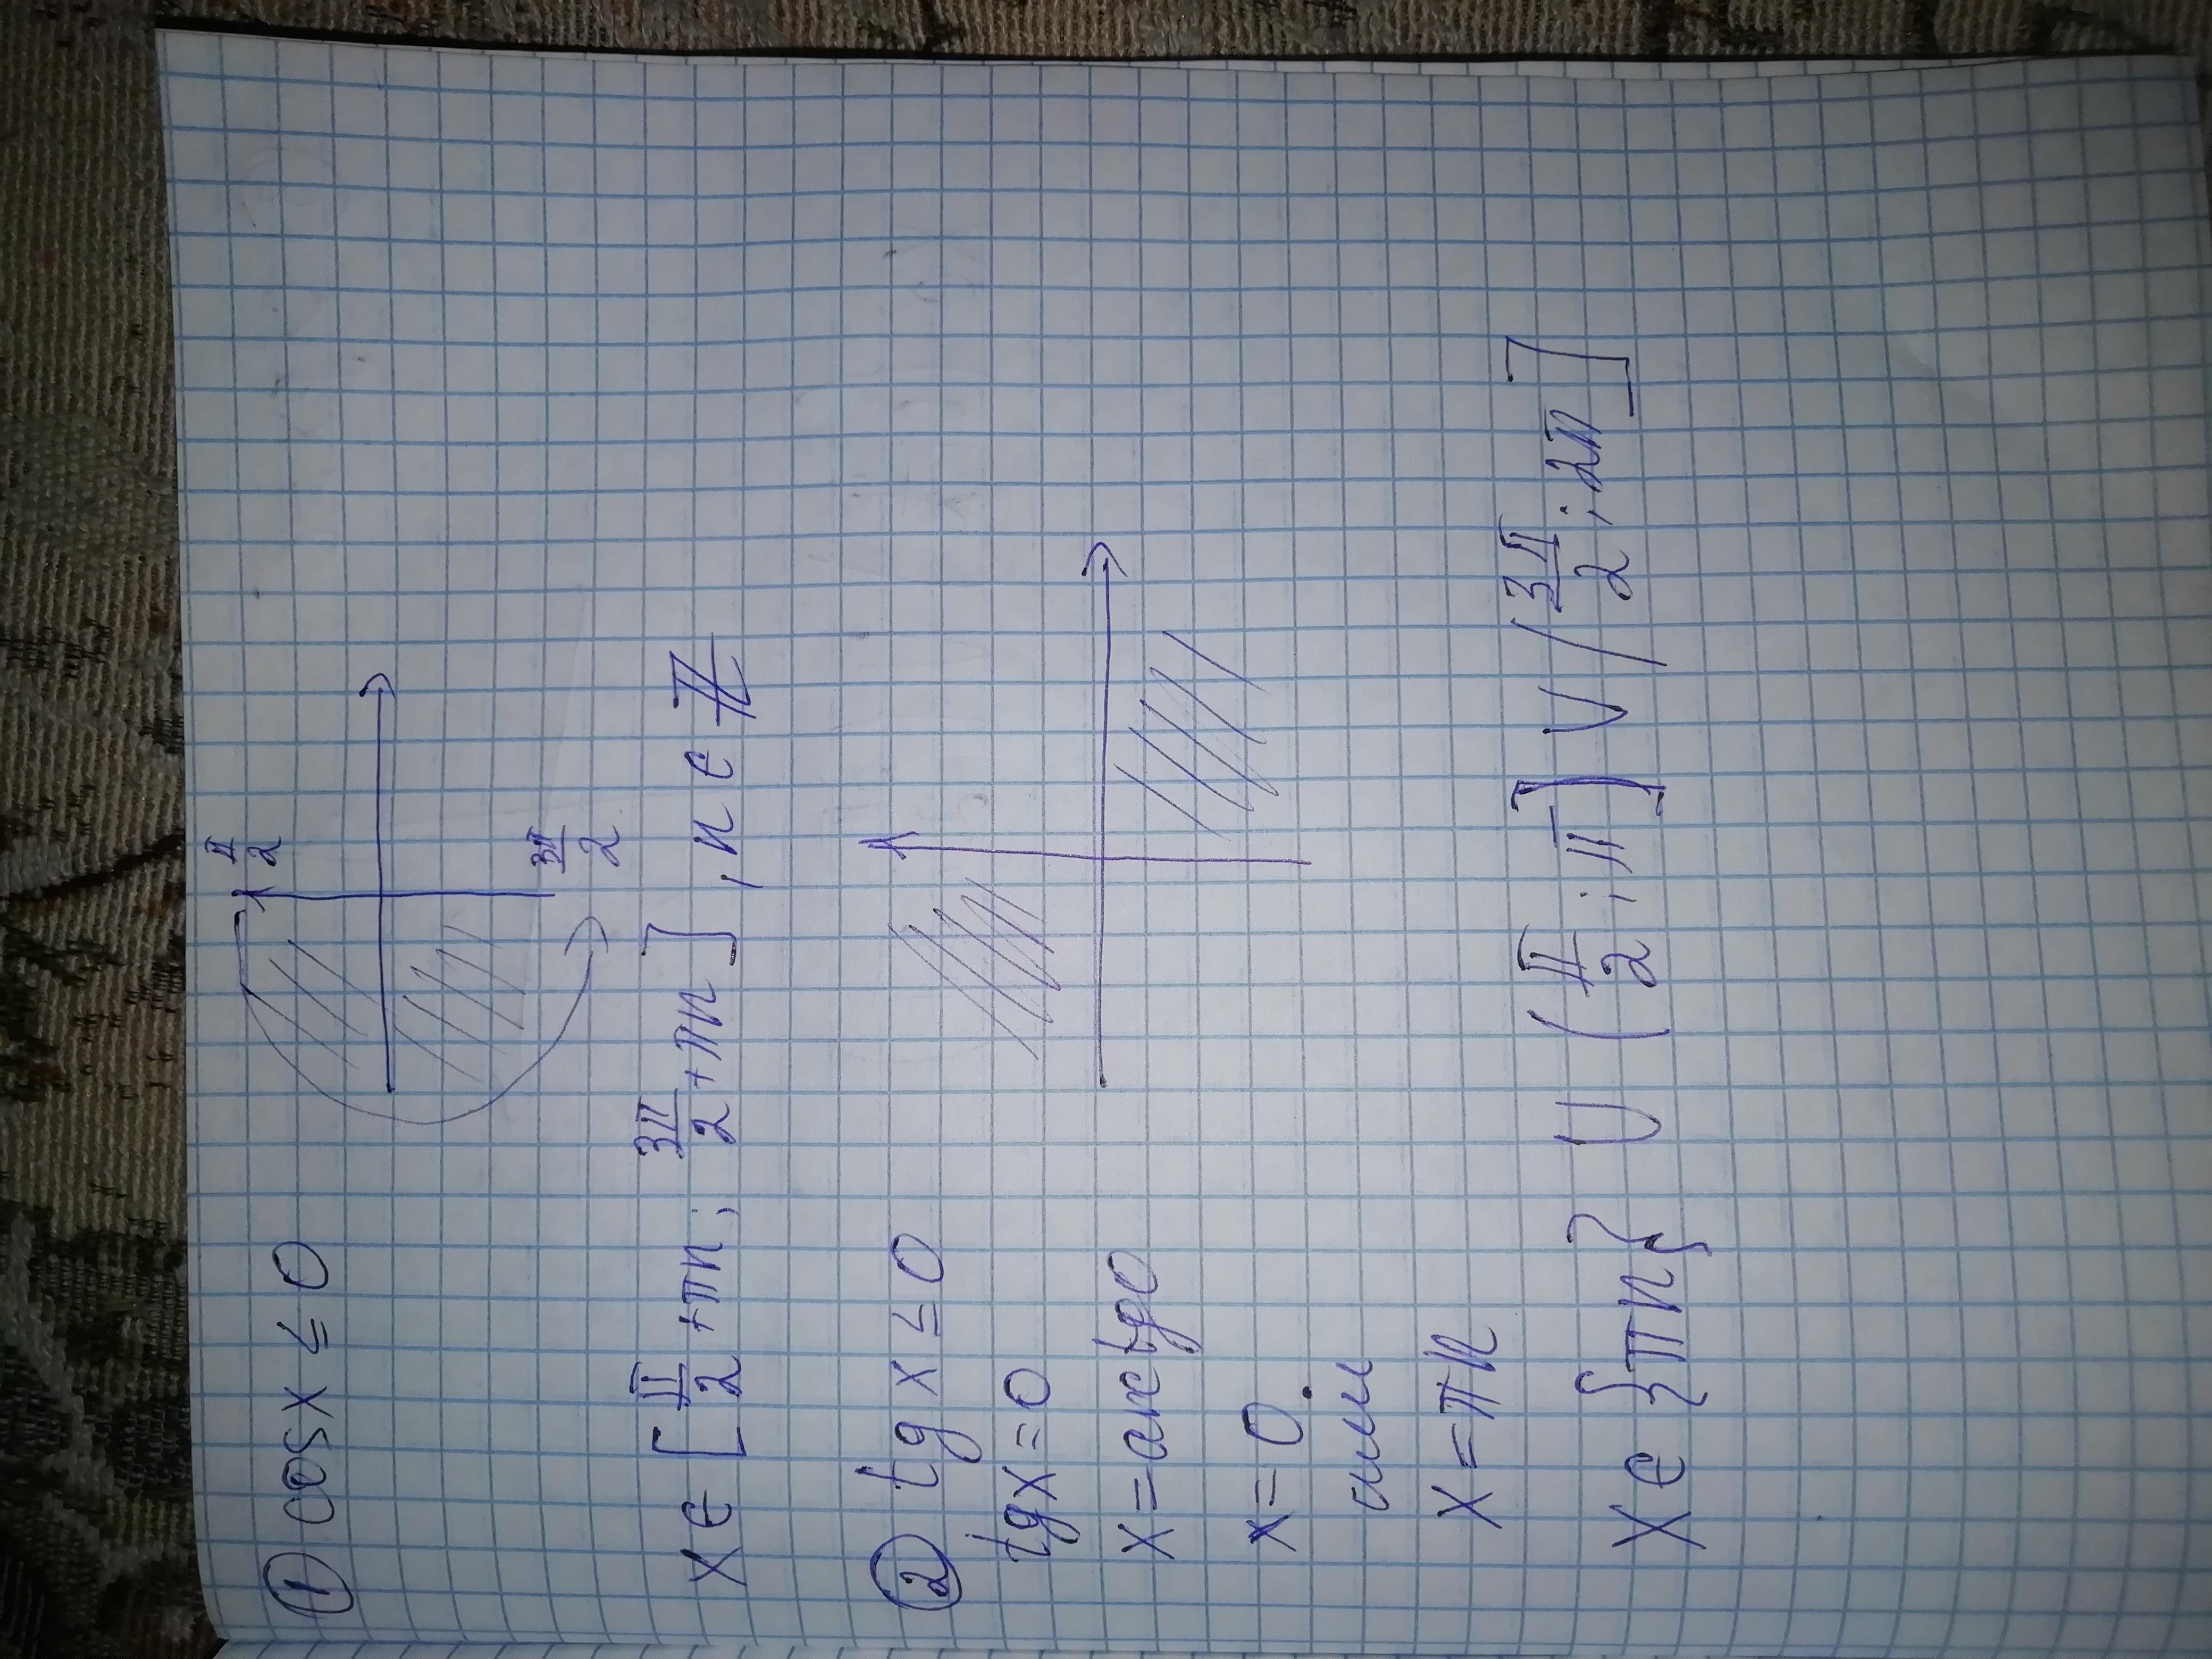 ① cosx ≤ 0
π/2
3π/2
x ∈ [π/2 + πn; 3π/2 + πn], n ∈ Z
② tg x ≤ 0
tgx = 0
x = arctg0
x = 0
или
x = πn
x ∈ {πn} ∪ (π/2; π] ∨ (3π/2; 2π]